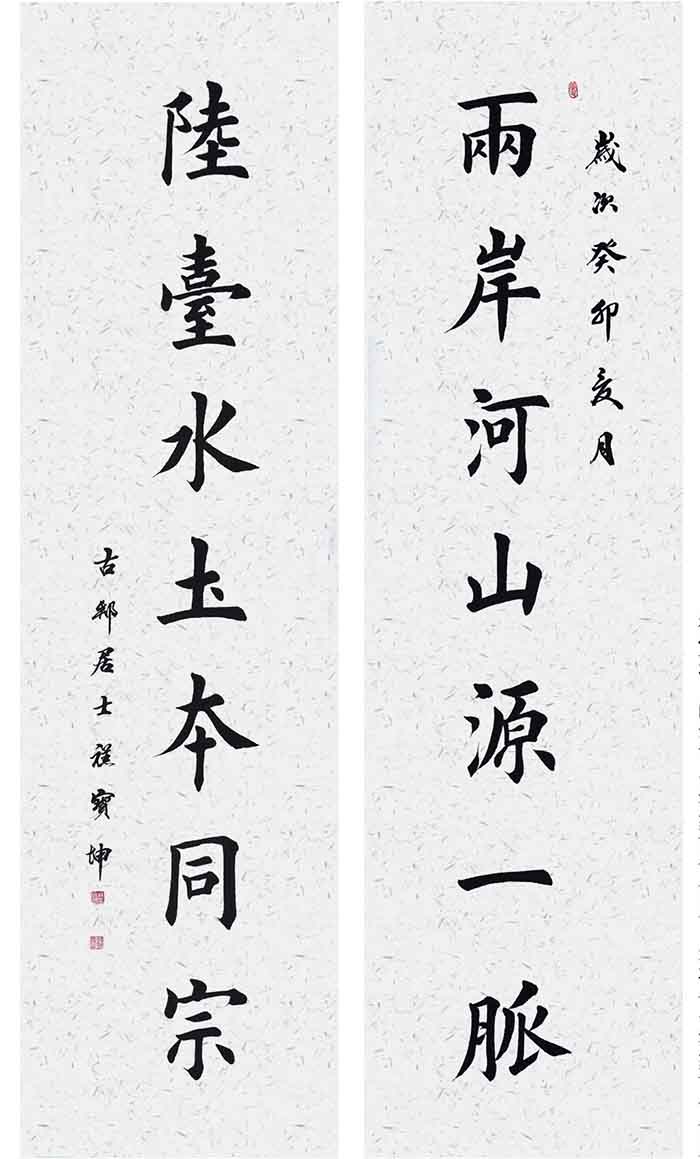 歲次癸卯夏月
兩岸河山源一脈
陸臺水土本同宗
古居士程寶坤